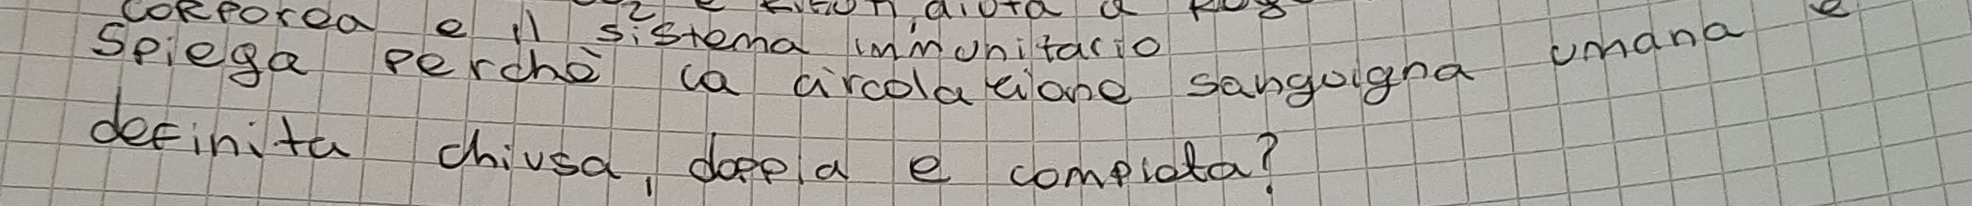 corporea e il sistema immunitario
Spiega perchè la circolazione sanguigna umana è
definita chiusa, doppia e completa?